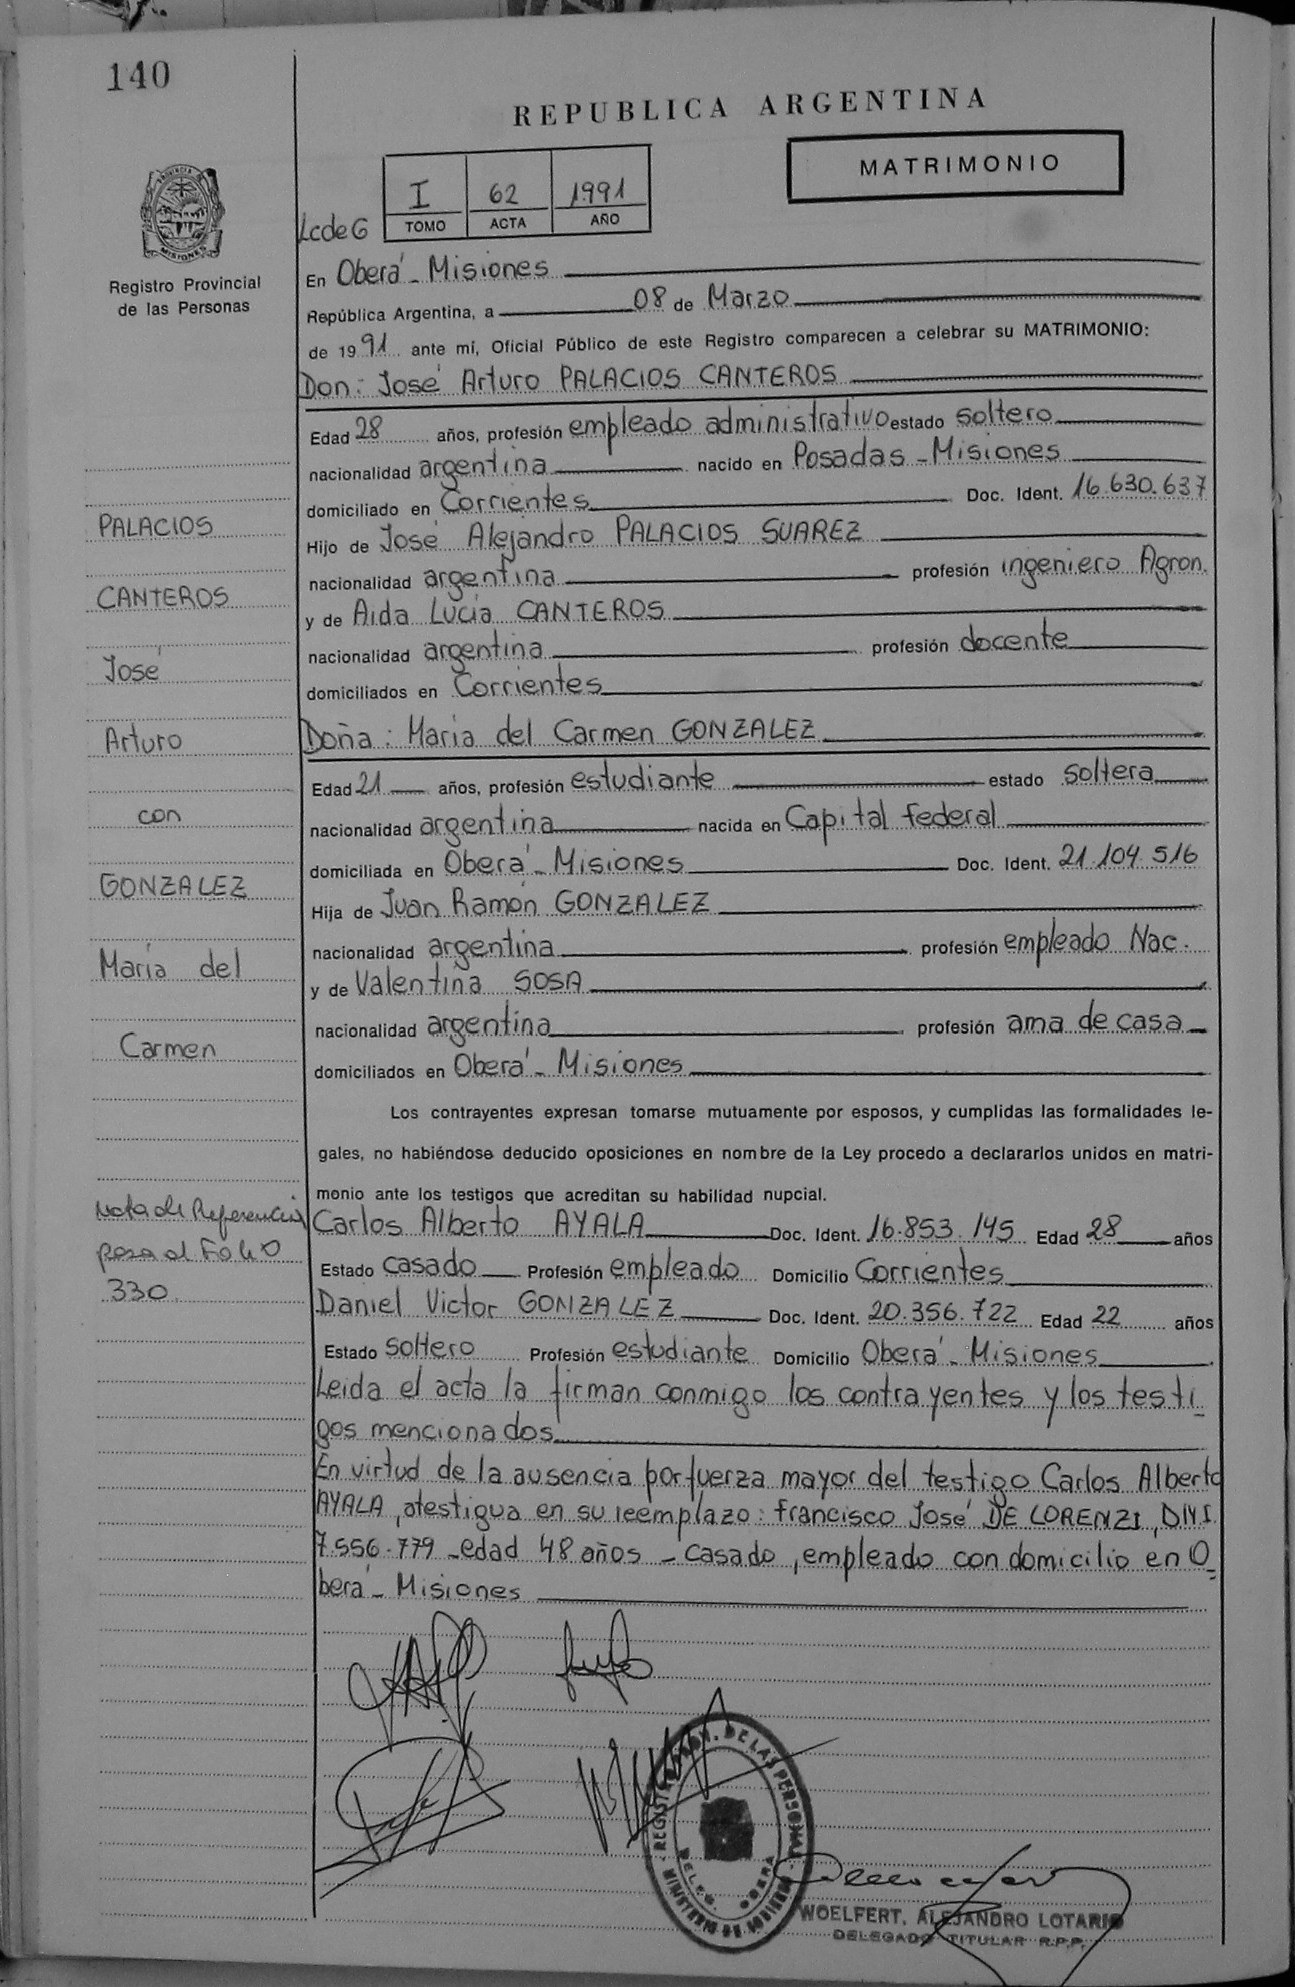 140
REPUBLICA ARGENTINA
MATRIMONIO
I 62 1991
TOMO ACTA AÑO
LcdeG
PROVINCIA DE
MISIONES
Registro Provincial
de las Personas
En Oberá - Misiones
República Argentina, a 08 de Marzo
de 1991 ante mí, Oficial Público de este Registro comparecen a celebrar su MATRIMONIO:
Don: José Arturo PALACIOS CANTEROS
Edad 28 años, profesión empleado administrativo estado soltero
nacionalidad argentina nacido en Posadas - Misiones
domiciliado en Corrientes Doc. Ident. 16.630.637
Hijo de José Alejandro PALACIOS SUAREZ
nacionalidad argentina profesión ingeniero Agron.
y de Aida Lucía CANTEROS
nacionalidad argentina profesión docente
domiciliados en Corrientes
Doña: María del Carmen GONZALEZ
Edad 21 años, profesión estudiante estado soltera
nacionalidad argentina nacida en Capital federal
domiciliada en Oberá - Misiones Doc. Ident. 21.104.516
Hija de Juan Ramón GONZALEZ
nacionalidad argentina profesión empleado Nac.
y de Valentina SOSA
nacionalidad argentina profesión ama de casa
domiciliados en Oberá - Misiones
PALACIOS
CANTEROS
José
Arturo
con
GONZALEZ
María del
Carmen
Los contrayentes expresan tomarse mutuamente por esposos, y cumplidas las formalidades le-
gales, no habiéndose deducido oposiciones en nombre de la Ley procedo a declararlos unidos en matri-
monio ante los testigos que acreditan su habilidad nupcial.
Carlos Alberto AYALA Doc. Ident. 16.853.145 Edad 28 años
Estado casado Profesión empleado Domicilio Corrientes
Daniel Victor GONZALEZ Doc. Ident. 20.356.722 Edad 22 años
Estado soltero Profesión estudiante Domicilio Oberá - Misiones
Nota de Referencia
pasa al Folio
330
Leida el acta la firman conmigo los contrayentes y los testi-
gos mencionados
En virtud de la ausencia por fuerza mayor del testigo Carlos Alberto
AYALA, atestigua en su reemplazo: Francisco José DE LORENZI, DNI.
7.556.779 - edad 48 años - casado, empleado con domicilio en O-
berá - Misiones
WOELFERT, ALEJANDRO LOTARIO
DELEGADO TITULAR R.P.P.